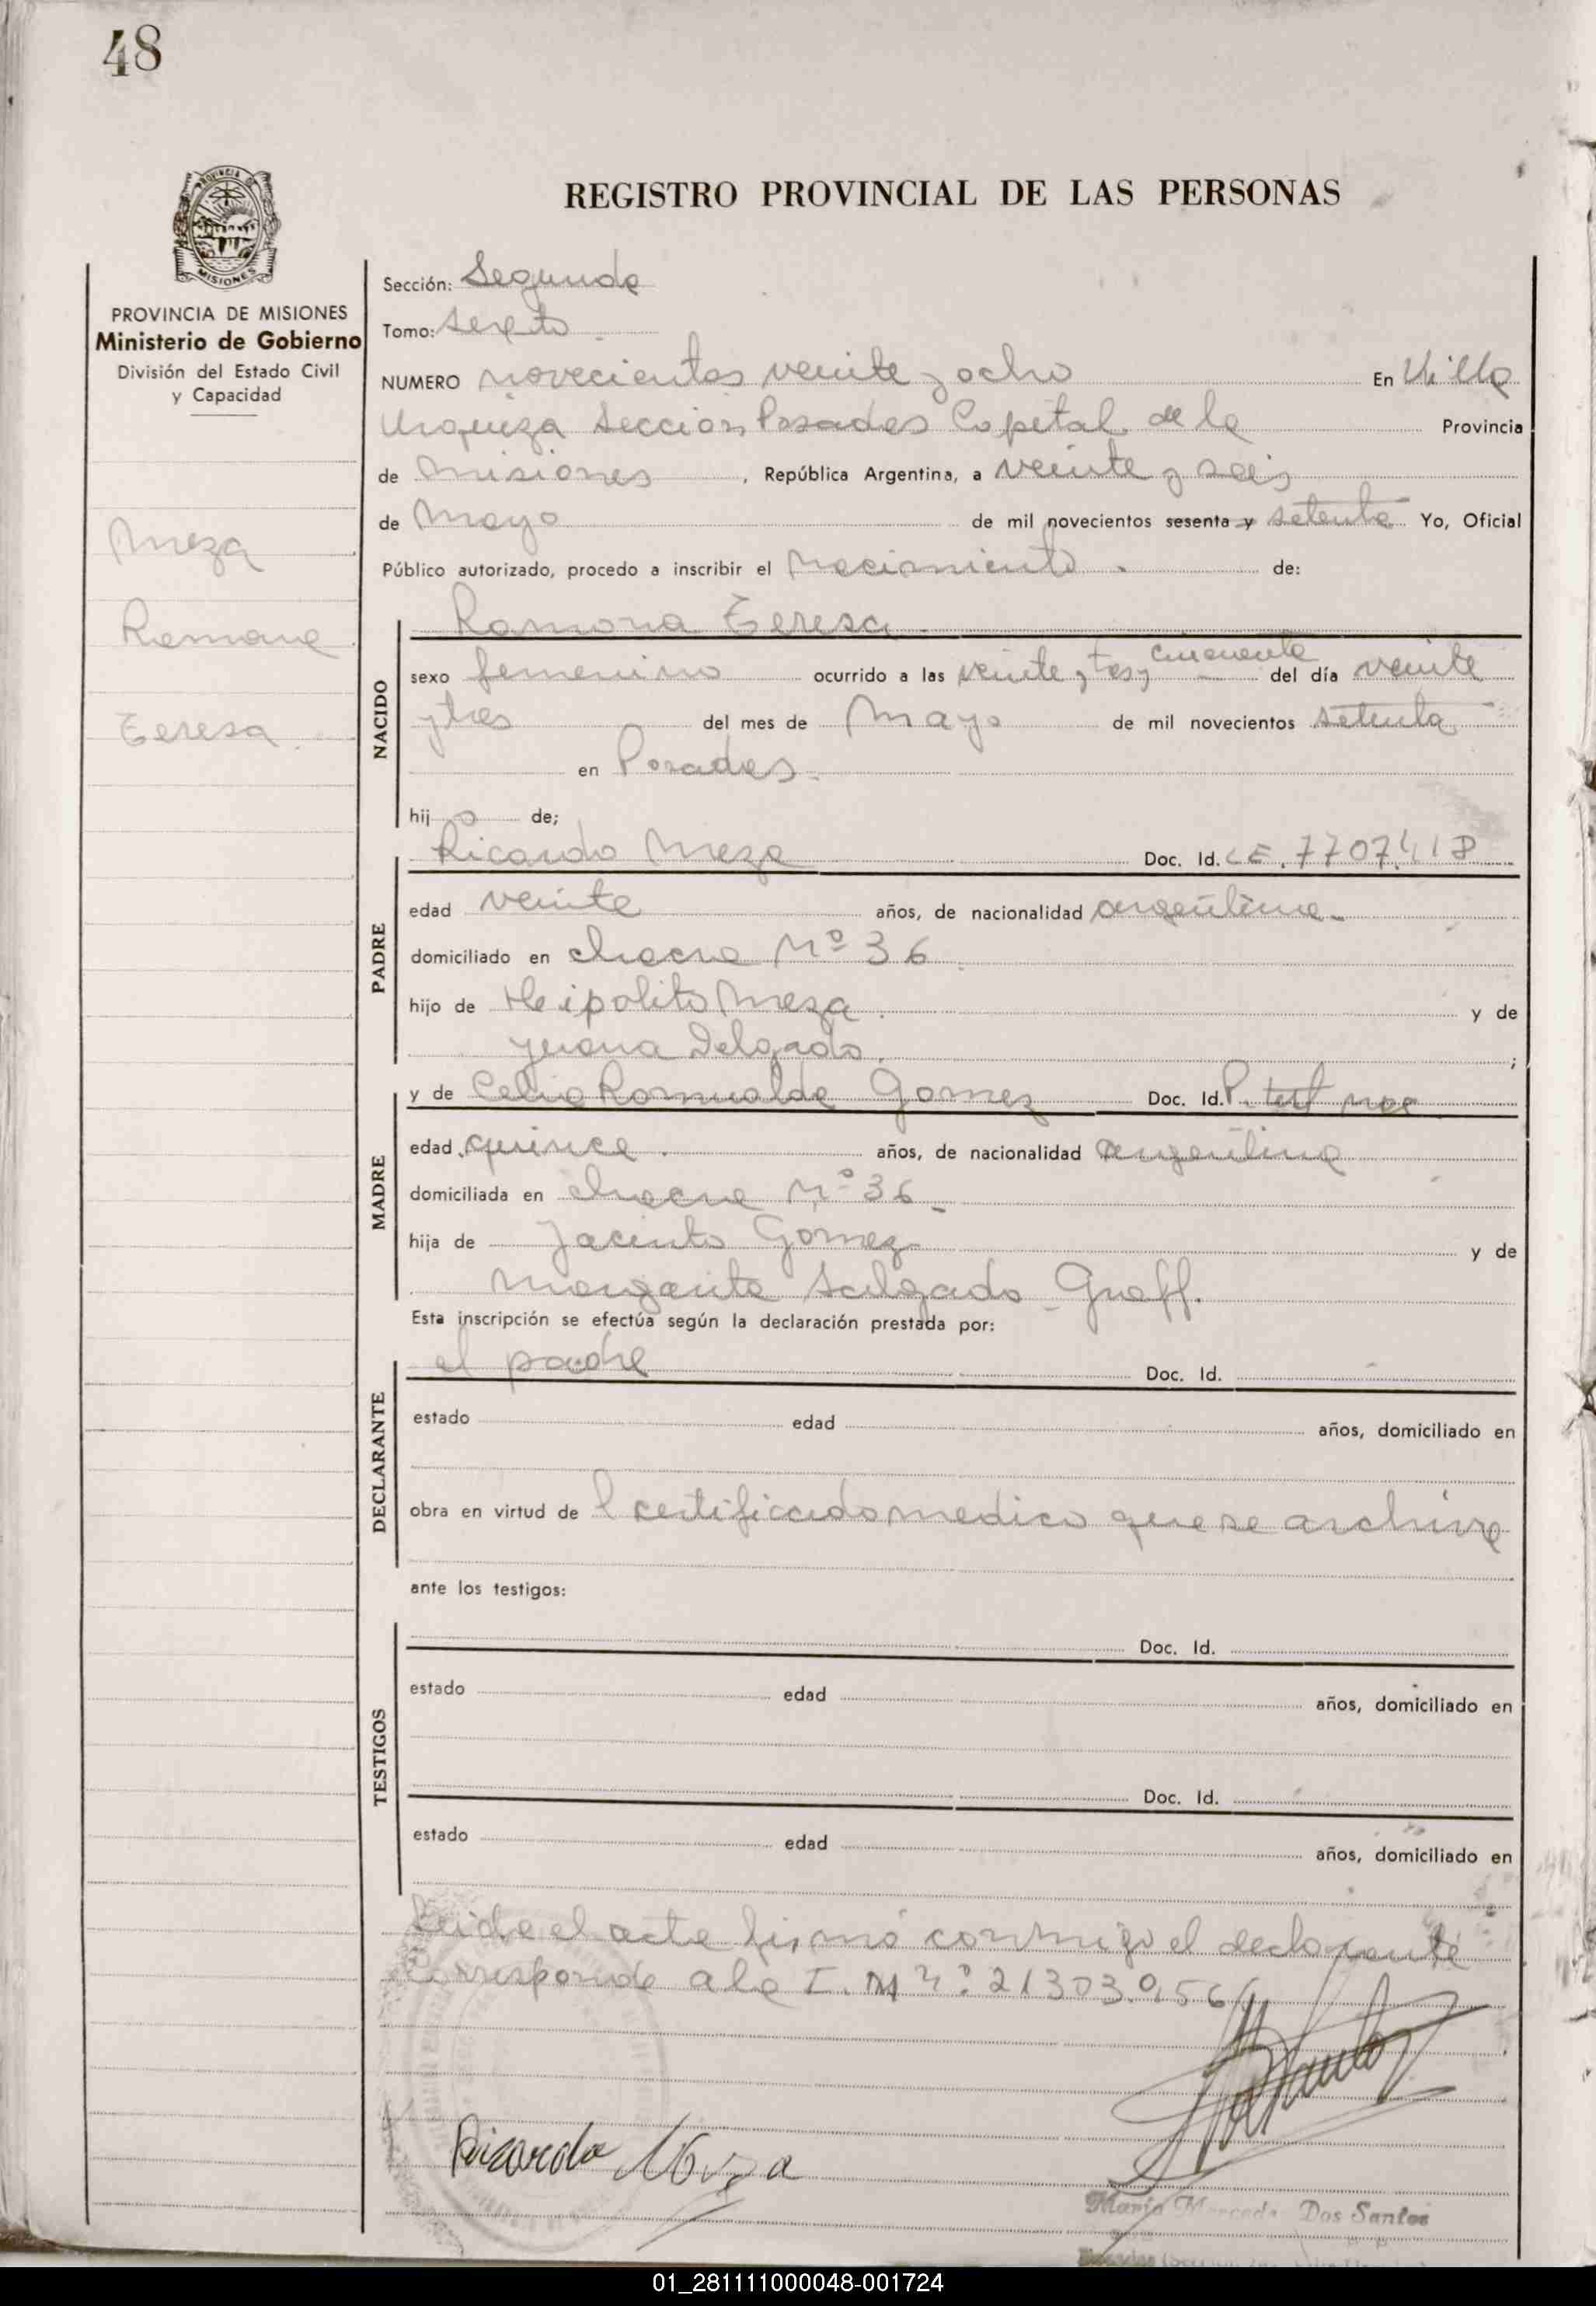 48
PROVINCIA DE
MISIONES
PROVINCIA DE MISIONES
Ministerio de Gobierno
División del Estado Civil
y Capacidad
Meza
Ramona
Teresa
REGISTRO PROVINCIAL DE LAS PERSONAS
Sección: Segunda
Tomo: sexto
NUMERO novecientos veinte y ocho En Villa
Urquiza Sección Posadas Capital de la Provincia
de Misiones, República Argentina, a veinte y seis
de Mayo de mil novecientos sesenta y setenta Yo, Oficial
Público autorizado, procedo a inscribir el nacimiento. de:
NACIDO
Ramona Teresa
sexo femenino ocurrido a las veinte y tres y cincuenta del día veinte
y tres del mes de Mayo de mil novecientos setenta
en Posadas.
hij a de;
PADRE
Ricardo Meza Doc. Id. L E. 7707.418
edad veinte años, de nacionalidad argentina
domiciliado en chacra Nº 36
hijo de Heipolito Meza y de
Delgado ;
MADRE
y de Celia Romualda Gomez Doc. Id.
edad quince. años, de nacionalidad argentina
domiciliada en chacra Nº 36
hija de Jacinto Gomez y de
Margarita Salgado Graff.
Esta inscripción se efectúa según la declaración prestada por:
DECLARANTE
el padre Doc. Id.
estado edad años, domiciliado en
obra en virtud de l certificado medico que se archiva
ante los testigos:
TESTIGOS
Doc. Id.
estado edad años, domiciliado en
Doc. Id.
estado edad años, domiciliado en
Leida el acta firmó conmigo el declarante
Corresponde a la I. M nº: 21303.056
Ricardo Meza
Maria Mercede Dos Santos
01_281111000048-001724